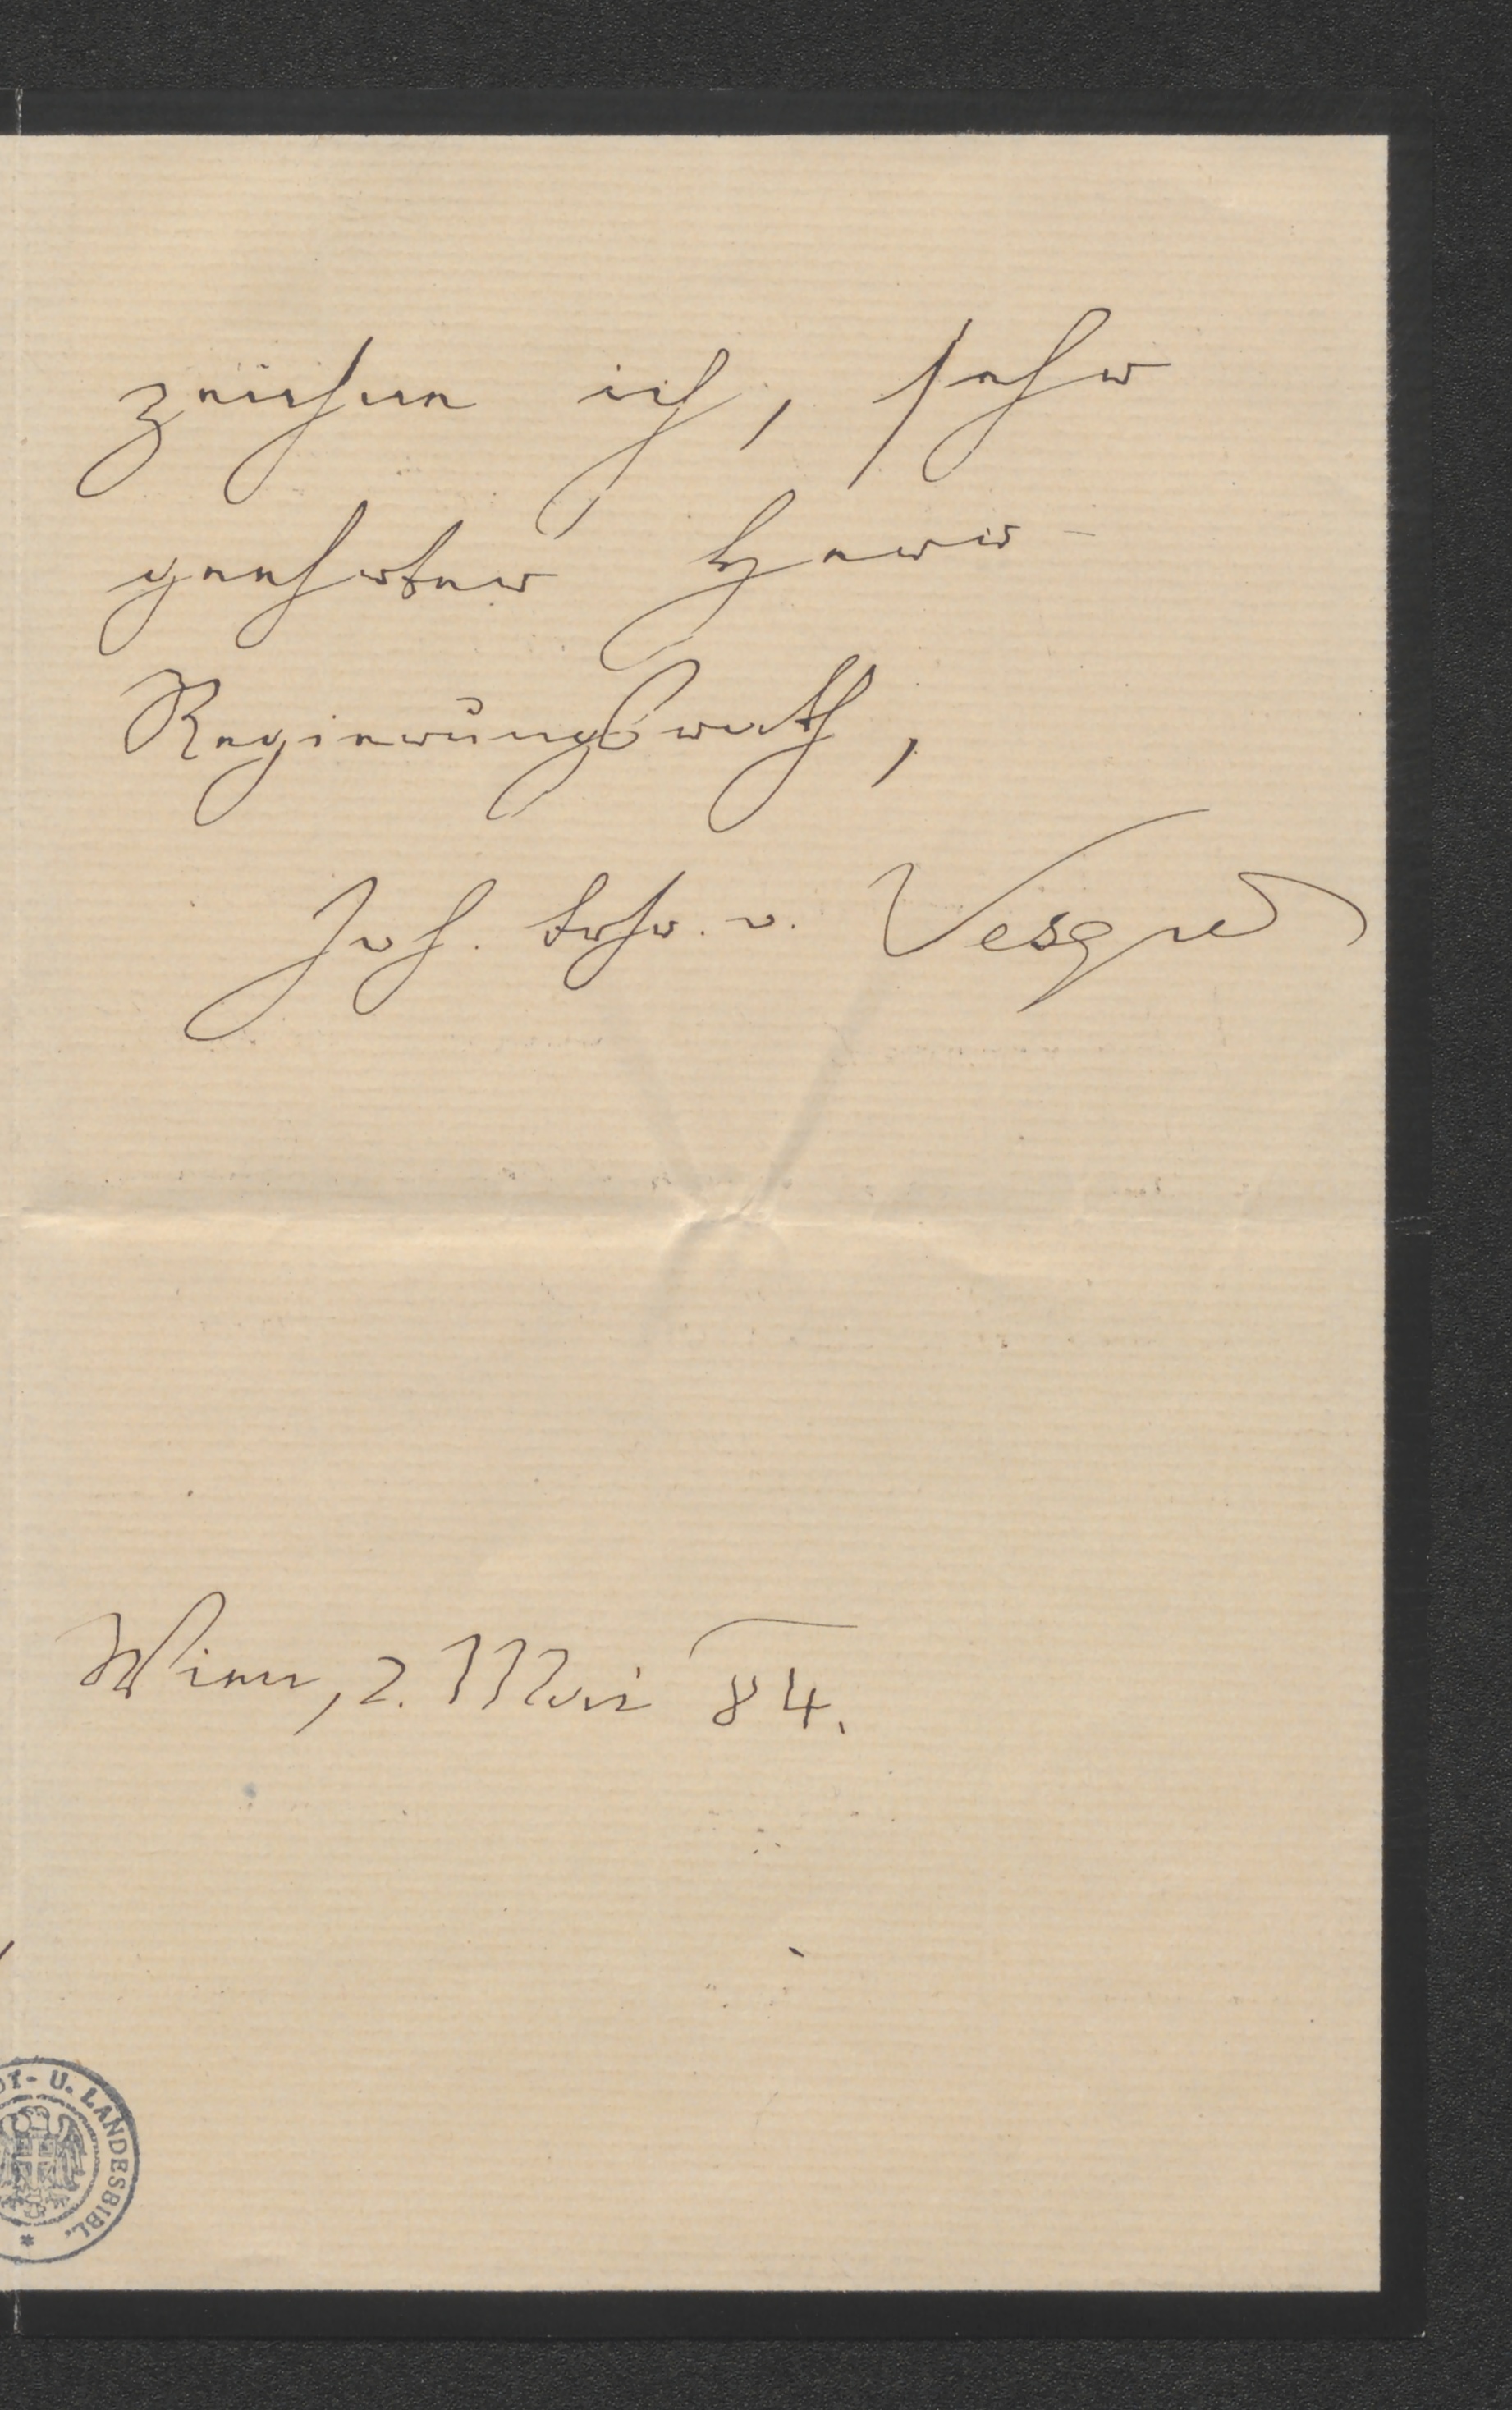 zeichne ich, sehr
geehrter Herr
Regierungsrath,
Joh. Frhr. v. Vesque
Wien, 2. Mai 84.
U. LANDESBIBL.